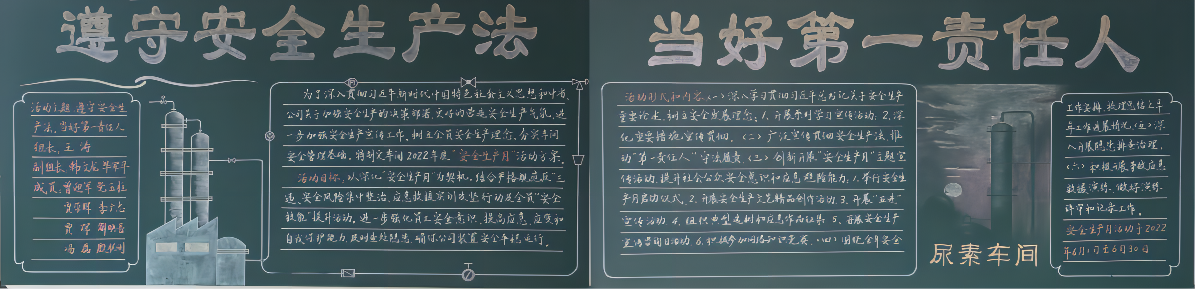 遵守安全生产法
当好第一责任人
活动主题:遵守安全生
产法,当好第一责任人
组长:王涛
副组长:韩
成员:曾
为了深入贯彻习近平新时代中国特色社会主义思想和中省、
公司关于加强安全生产的决策部署,更好的营造安全生产气氛,进
一步加强安全生产宣传工作,树立企业安全生产理念,夯实车间
安全管理基础,特制定车间2022年度"安全生产月"活动方案。
活动目标:以深化"安全生产月"为契机,结合严格规范反"三
违"安全风险集中整治、应急救援实训攻坚行动及全员"安全
技能"提升活动,进一步强化员工安全意识、提高应急、应变和
自我防护能力,及时查处隐患,确保公司装置安全平稳运行。
活动形式和内容:(一)深入学习贯彻习近平总书记关于安全生产
重要论述,树立安全发展理念:1.开展系列学习宣传活动,2.深
化重要措施宣传贯彻。(二)广泛宣传贯彻安全生产法,推
动"第一责任人"守法履责。(三)创新开展"安全生产月"主题宣
传活动,提升社会公众安全意识和应急避险能力:1.举行安全生
产月启动仪式,2.开展安全生产文艺精品创作活动,3.开展"五进"
宣传活动,4.组织典型案例和应急作品征集,5.开展安全生产
宣传咨询日活动,6.积极参加网络知识竞赛。(四)围绕全年安全
尿素车间
工作安排,梳理总结上半
年工作进展情况。(五)深
入开展隐患排查治理。
(六)积极开展事故应急
救援演练,做好演练
评审和记录工作。
安全生产月活动于2022
年6月1日至6月30日